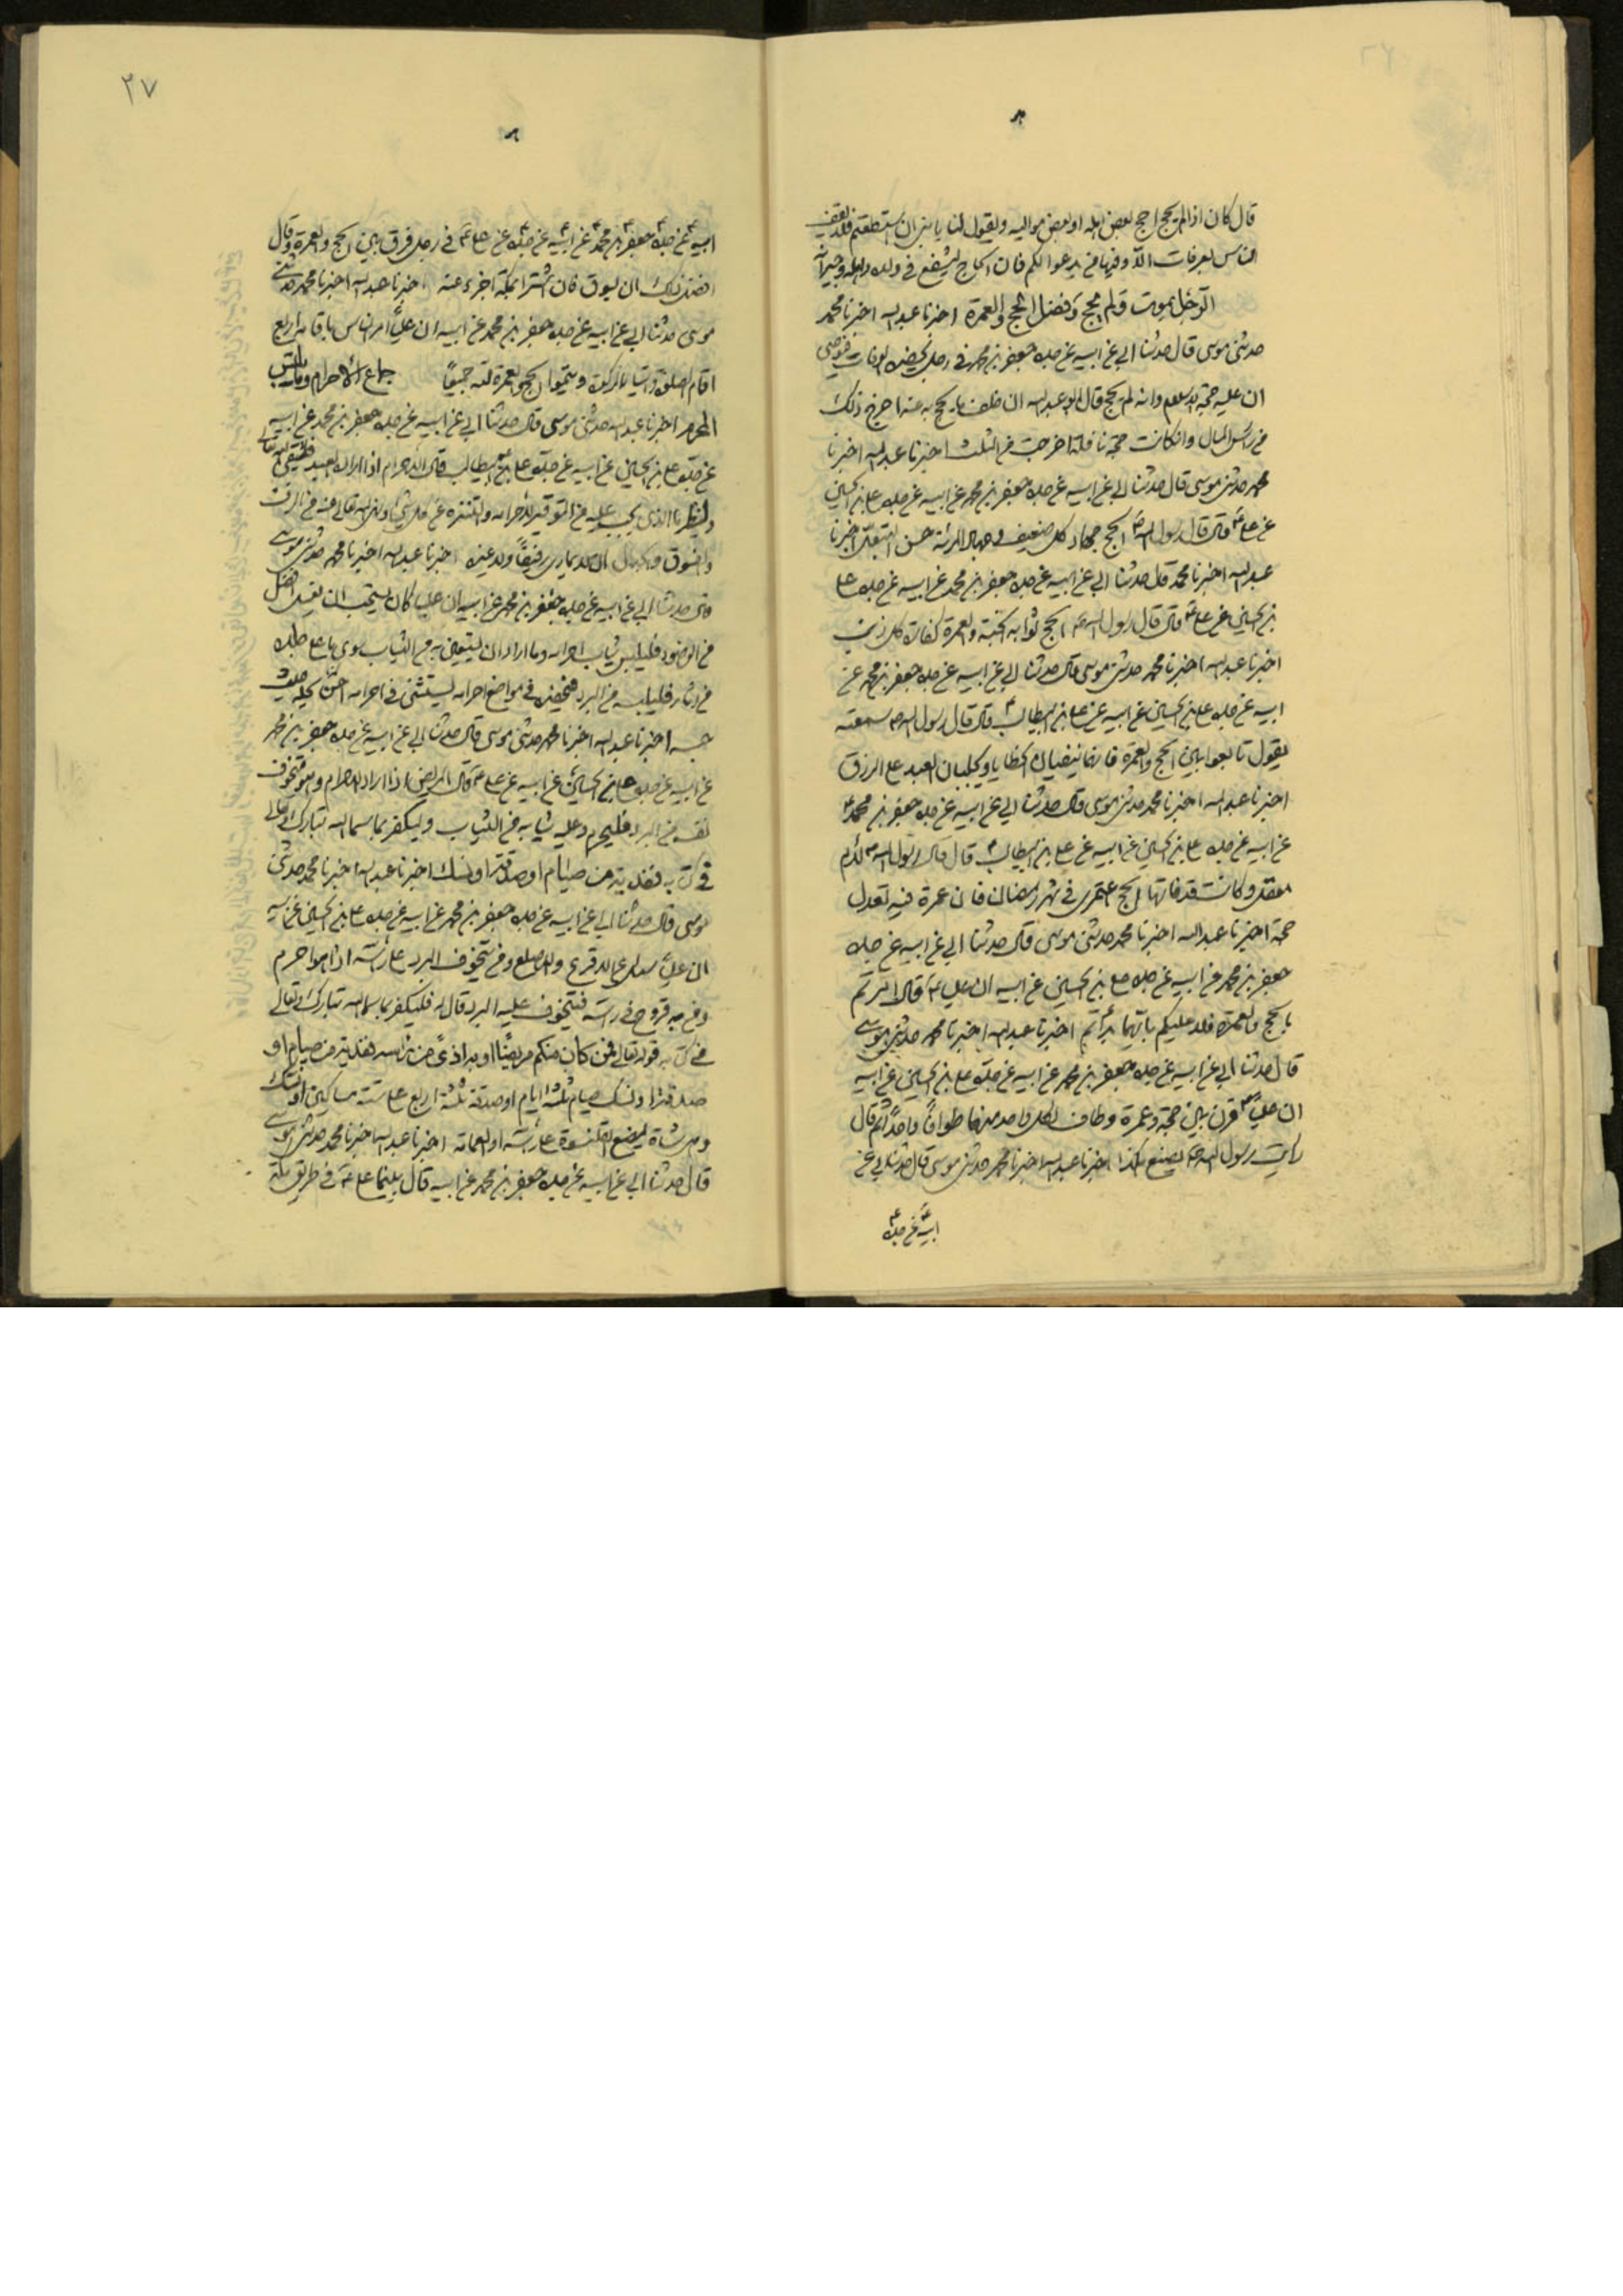 قال كان اذا لم يحج احج بعض اهله او بعض مواليه ويقول لنا يا بني ان استطعتم فلا يقف
الناس بعرفات الا وفيها من يدعو لكم فان الحاج ليشفع في ولده واهله وجيرانه
الرجل يموت ولم يحج وفضل الحج والعمرة اخبرنا عبد الله اخبرنا محمد
حدثني موسى قال حدثنا ابي عن ابيه عن جده جعفر بن محمد في رجل تحضره الوفات فيوصي
ان عليه حجة الاسلام وانه لم يحج قال ابو عبد الله ان خلف ما يحج به عنه اخرج ذلك
من رأس المال وان كانت حجة نافلة اخرجت من الثلث اخبرنا عبد الله اخبرنا
محمد حدثني موسى قال حدثنا ابي عن ابيه عن جده جعفر بن محمد عن ابيه عن جده علي بن الحسين
عن علي ع قال قال رسول الله ص الحج جهاد كل ضعيف وجهاد المرئة حسن التبعل اخبرنا
عبد الله اخبرنا محمد قال حدثنا ابي عن ابيه عن جده جعفر بن محمد عن ابيه عن جده علي
بن الحسين عن علي ع قال قال رسول الله ص الحج ثوابه الجنة والعمرة كفارة كل ذنب
اخبرنا عبد الله اخبرنا محمد حدثني موسى قال حدثنا ابي عن ابيه عن جده جعفر بن محمد عن
ابيه عن جده علي بن الحسين عن ابيه عن علي بن ابيطالب ع قال قال رسول الله ص سمعته
يقول تابعوا بين الحج والعمرة فانهما ينفيان الخطايا ويجلبان العبد على الرزق
اخبرنا عبد الله اخبرنا محمد حدثني موسى قال حدثنا ابي عن ابيه عن جده جعفر بن محمد ع
عن ابيه عن جده علي بن الحسين عن ابيه عن علي بن ابيطالب ع قال قال رسول الله ص لام
معقل وكانت قد فاتها الحج اعتمري في شهر رمضان فان عمرة فيه تعدل
حجة اخبرنا عبد الله اخبرنا محمد حدثني موسى قال حدثنا ابي عن ابيه عن جده
جعفر بن محمد عن ابيه عن جده علي بن الحسين عن ابيه ان علي ع قال
بالحج والعمرة فلا عليكم بايهما بدأتم اخبرنا عبد الله اخبرنا محمد حدثني موسى
قال حدثنا ابي عن ابيه عن جده جعفر بن محمد عن ابيه عن جده علي بن الحسين عن ابيه
ان عليا ع قرن بين حجة وعمرة وطاف لكل واحد منهما طوافا واحدا ثم قال
رايت رسول الله ص يصنع هكذا اخبرنا عبد الله اخبرنا محمد حدثني موسى قال حدثنا ابي عن
ابيه عن جده
٢٧
ابيه عن جده جعفر بن محمد عن ابيه عن جده عن علي ع في رجل فرق بين الحج والعمرة وقال
افضل ذلك ان يسوق فان اشترا بمكة اجزء عنه اخبرنا عبد الله اخبرنا محمد حدثني
موسى حدثنا ابي عن ابيه عن جده جعفر بن محمد عن ابيه ان عليا امر الناس باقامة اربع
اقام الصلوة وايتاء الزكوة ويتموا الحج والعمرة لله جميعا جماع الاحرام وما يلبس
المحرم اخبرنا عبد الله حدثني موسى قال حدثنا ابي عن ابيه عن جده جعفر بن محمد عن ابيه
عن جده علي بن الحسين عن ابيه عن جده علي بن ابيطالب قال الاحرام اذا اراد العبد فليتقي الله تعالى
ولينظر ما الذي يجب عليه من التوقير لاحرامه والتنزه عن كل شئ نهى الله تعالى عنه من الرفث
والفسوق والجدال ان لا يماري رفيقا ولا غيره اخبرنا عبد الله اخبرنا محمد حدثني موسى
قال حدثنا ابي عن ابيه عن جده جعفر بن محمد عن ابيه ان عليا كان يستحب ان يغتسل افضل
من الوضوء فليلبس ثياب احرامه وما اراد ان يستعين به من الثياب سوى ما على جلده
من دثار فليلبسه من البرد في مواضع احرامه يستثنى في احرامه ان يحله حيث
حبسه اخبرنا عبد الله اخبرنا محمد حدثني موسى قال حدثنا ابي عن ابيه عن جده جعفر بن محمد
عن ابيه عن جده علي بن الحسين عن ابيه عن علي ع قال المريض اذا اراد الاحرام وهو يتخوف
نفسه من البرد فليحرم وعليه ثيابه من الثياب وليكفر بما سماه الله تبارك وتعالى
في كتابه ففدية من صيام او صدقة او نسك اخبرنا عبد الله اخبرنا محمد حدثني
موسى قال حدثنا ابي عن ابيه عن جده جعفر بن محمد عن ابيه عن جده علي بن الحسين عن ابيه
ان عليا سئل عن الاقرع والاصلع ومن يتخوف البرد على رأسه اذا هو احرم
ومن به قروح في راسه فيتخوف عليه البرد قال له فليكفر بما سماه الله تبارك وتعالى
في كتابه قوله تعالى فمن كان منكم مريضا او به اذى من رأسه ففدية من صيام او
صدقة او نسك صيام ثلثة ايام او صدقة ثلثة اربع على ستة مساكين او نسك
وهي شاة ليضع القلنسوة على رأسه او العمامة اخبرنا عبد الله اخبرنا محمد حدثني موسى
قال حدثنا ابي عن ابيه عن جده جعفر بن محمد عن ابيه قال بينما علي ع في طريق مكة